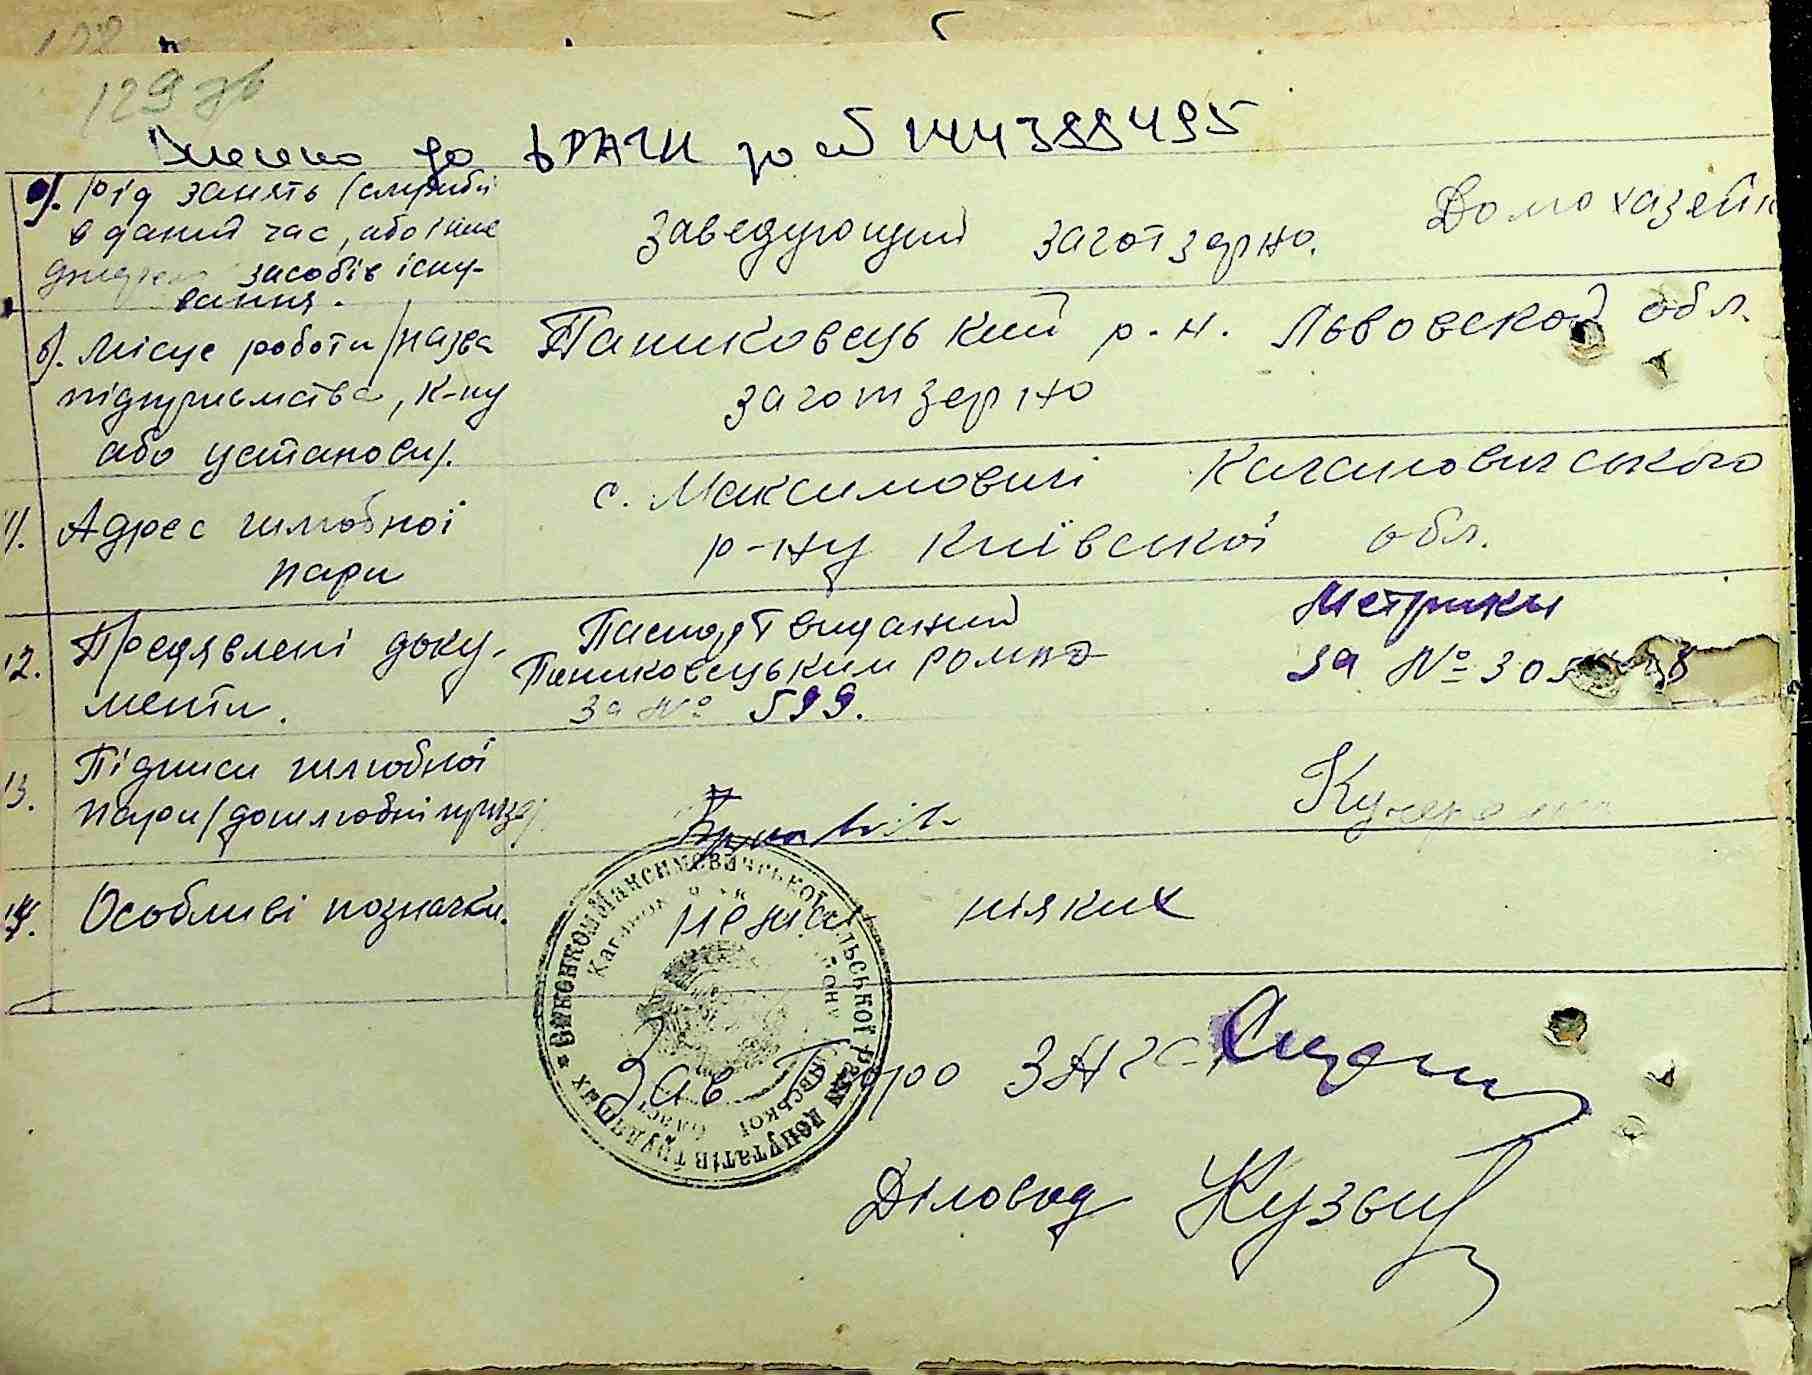 129 зв
Внесено до ДРАЦС за об 144388495
а). Рід занять (служби
в даний час, або інше
джерело засобів існу-
вання.
Заведующий заготзерно.
Домохазейк
б). Місце роботи (назва
підприємства, к-пу
або установи).
Паниковецький р-н. Львовской обл.
заготзерно
11. Адрес шлюбної
пари
с. Максимовичі Кагановичського
р-ну Київської обл.
12. Предявлені доку-
менти.
Паспорт виданий
Паниковецьким
за № 599.
Метрики
за № 305
13. Підписи шлюбної
пари (дошлюбні прізв
14. Особливі позначки.
нема ніяких
Виконком Максимовичської сільської ради депутатів трудящих
Київської області
Зав Бюро ЗАГС
Діловод